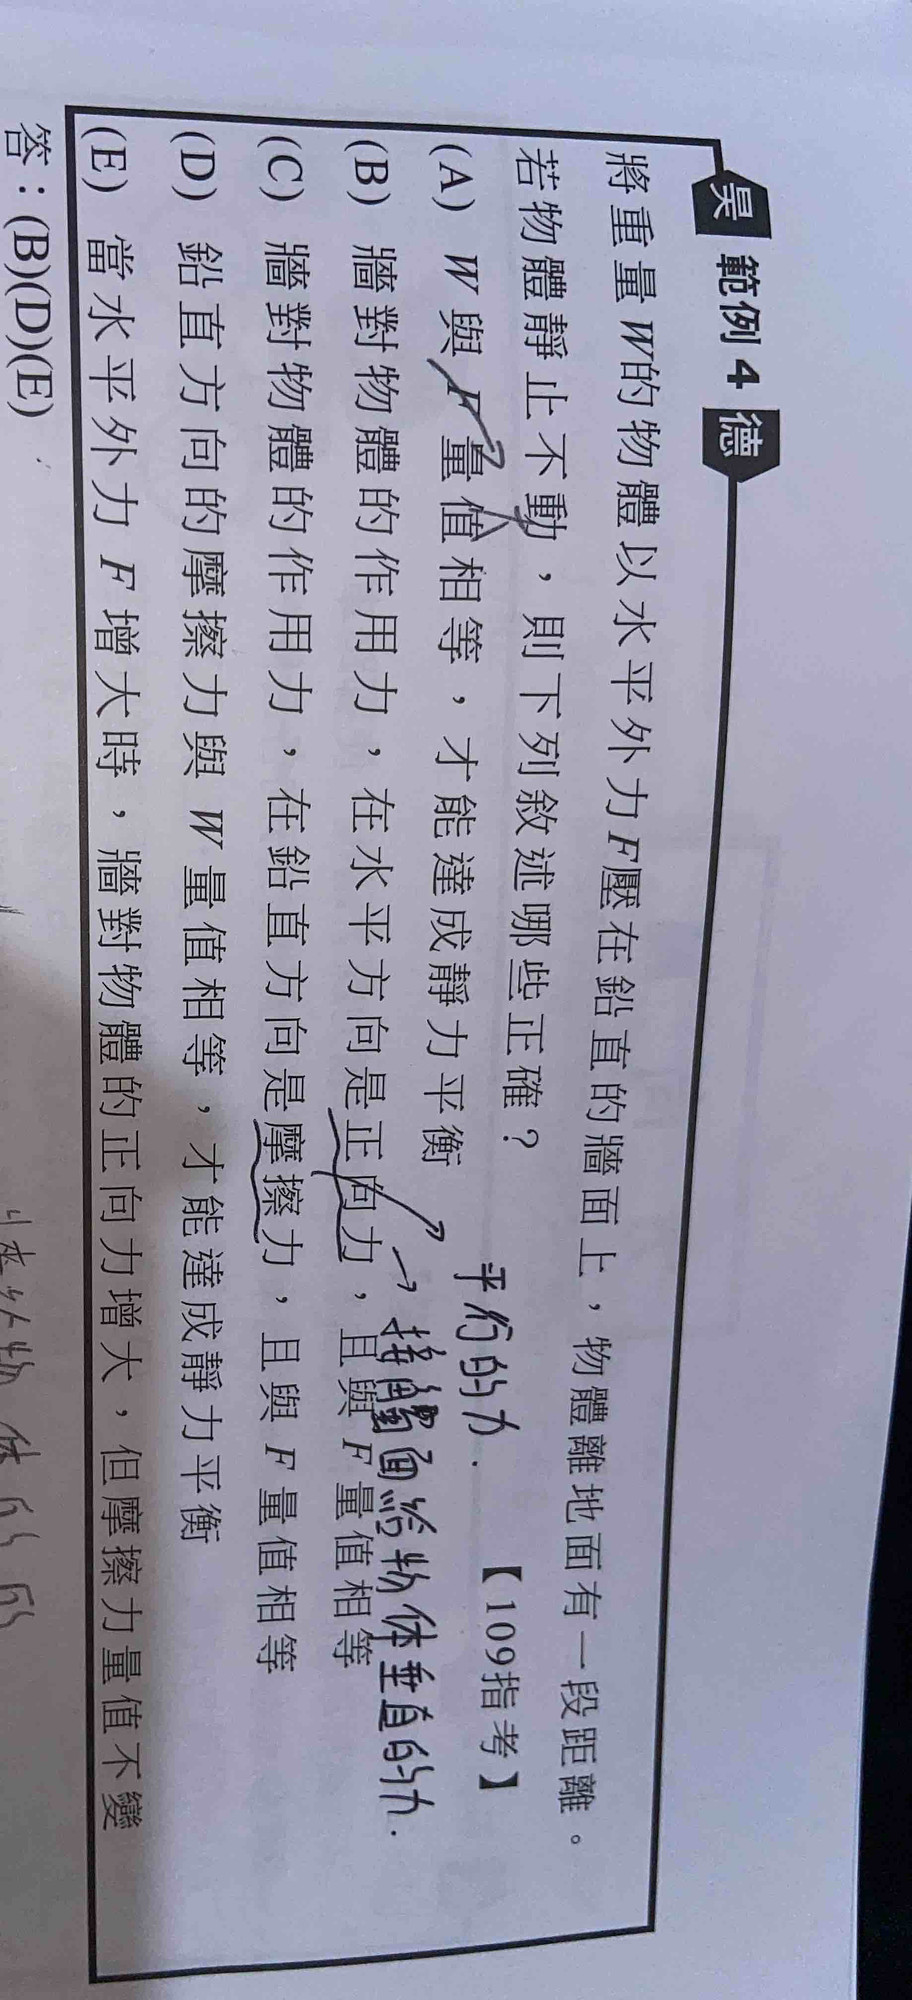 吳 範例 4 德
將重量W的物體以水平外力F壓在鉛直的牆面上，物體離地面有一段距離。
若物體靜止不動，則下列敘述哪些正確？ 【109指考】
平行的力.
(A) W與F量值相等，才能達成靜力平衡
→接觸面給物体垂直的力.
(B) 牆對物體的作用力，在水平方向是正向力，且與F量值相等
(C) 牆對物體的作用力，在鉛直方向是摩擦力，且與F量值相等
(D) 鉛直方向的摩擦力與W量值相等，才能達成靜力平衡
(E) 當水平外力F增大時，牆對物體的正向力增大，但摩擦力量值不變
答：(B)(D)(E)